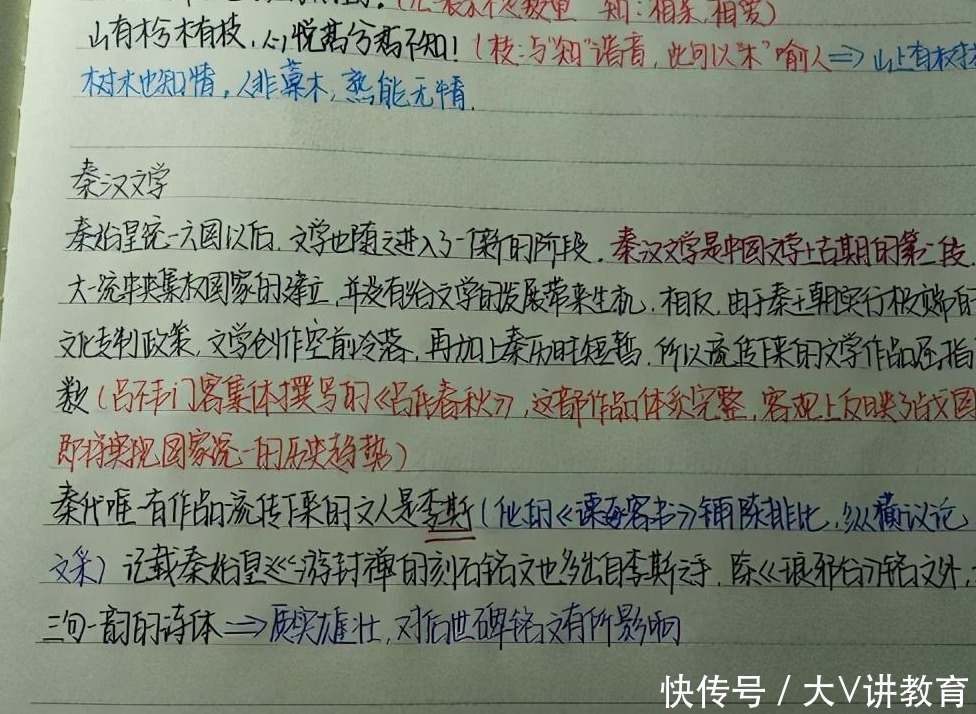 知:相亲,相爱)
山有木兮木有枝,心悦君兮君不知!(枝:与"知"谐音,此句以"木"喻人⇒山上有树木
树木也知情,人非草木,孰能无情.
秦汉文学
秦始皇统一六国以后,文学也随之进入了一个新的阶段.秦汉文学是中国文学上古期的第二段.
大一统中央集权国家的建立,并没有给文学的发展带来生机,相反,由于秦王朝实行极端的
文化专制政策,文学创作空前冷落,再加上秦历时短暂,所以流传下来的文学作品屈指可
数(吕不韦门客集体撰写的《吕氏春秋》,这部作品体系完整,客观上反映了战国
即将实现国家统一的历史趋势)
秦代唯一有作品流传下来的文人是李斯(他的《谏逐客书》铺陈排比,纵横议论
文采)记载秦始皇巡游封禅的刻石铭文也多出自李斯之手.除《琅邪台》铭文外,
三句一韵的诗体⇒质实雄壮,对后世碑铭文有所影响
快传号 / 大V讲教育